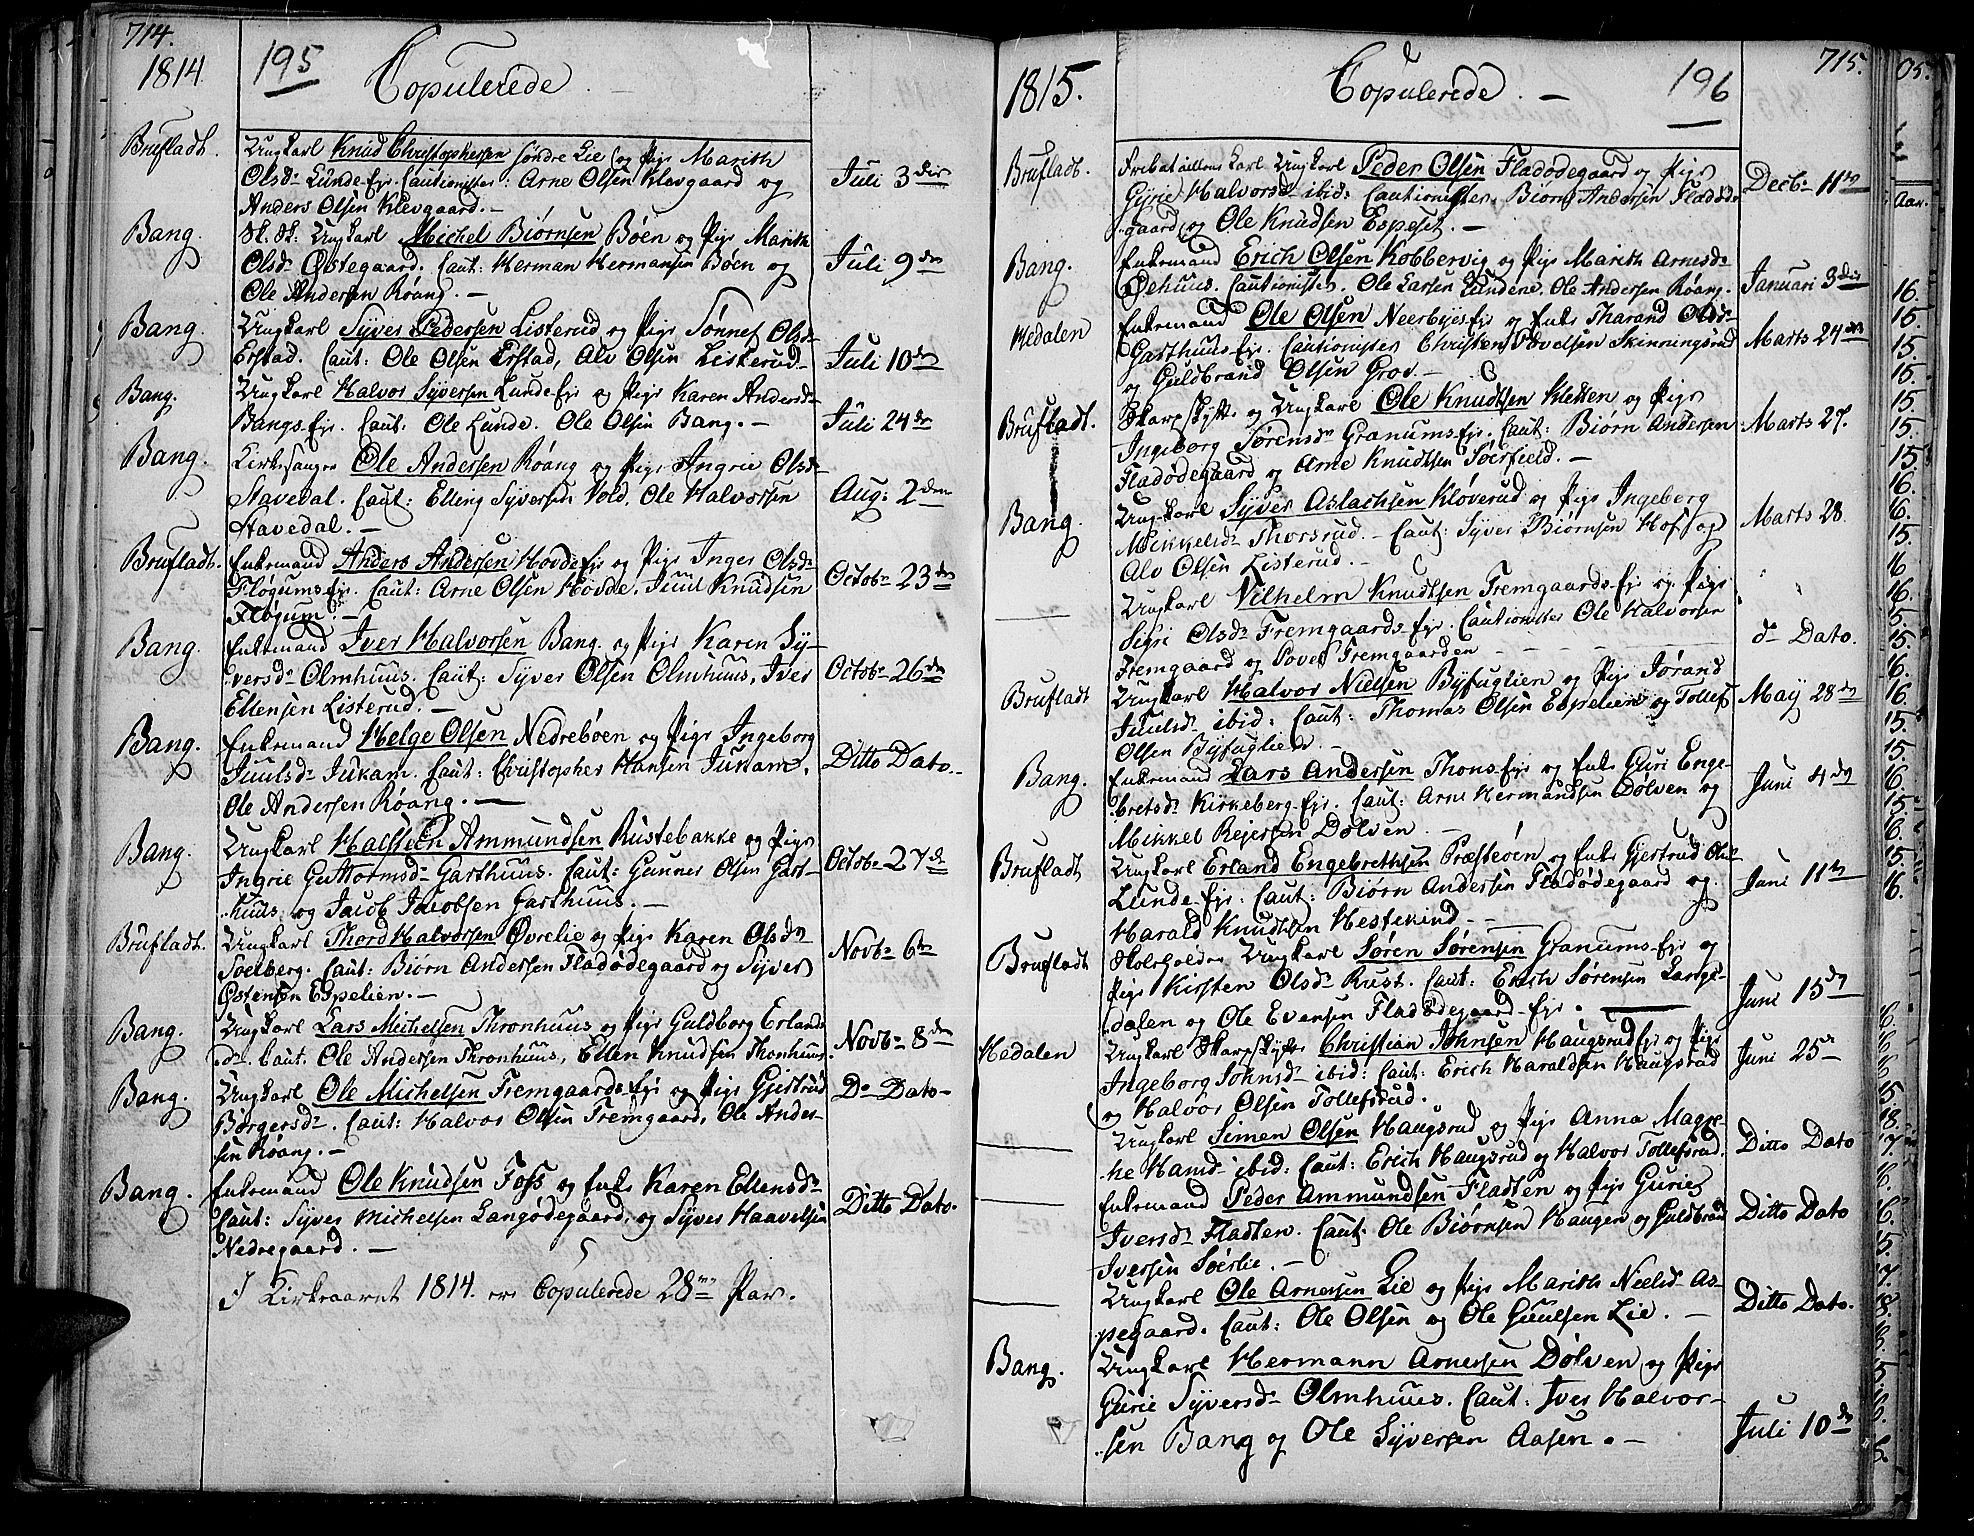 714.
1814
195
Copulerede.
Brufladt.
Ungkarl Knud Christophersen søndre Lie og Pige Marith
Olsdr Lunde-Eje. Cautionister: Arne Olsen Klevgaard og
Anders Olsen Klevgaard. —
Juli 3die
Bang.
Sk. Sk: Ungkarl Michel Biørnsen Bøen og Pige Marith
Olsdr Østegaard. Caut: Herman Hermansen Bøen og
Ole Andersen Røang. —
Juli 9de
Bang.
Ungkarl Syver Pedersen Listerud og Pige Sønnef Olsdr
Erstad. Caut: Ole Olsen Erstad, Alv Olsen Listerud —
Juli 10de
Bang.
Ungkarl Halvor Syversen Lunde-Eje og Pige Karen Andersdr
Bangs-Eje. Caut: Ole Lunde. Ole Olsen Bang. —
Juli 24de
Bang.
Kirkesanger Ole Andersen Røang og Pige Ingrie Olsdr
Stavedal. Caut: Elleng Syversen Vold. Ole Halvorsen
Stavedal. —
Aug: 2den
Brufladt.
Enkemand Anders Andersen Hovde Eje og Pige Inger Olsdr
Fløgums Eje. Caut: Arne Olsen Hovde. Juul Knudsen
Fløgum. —
Octobr 23de
Bang.
Enkemand Iver Halvorsen Bang og Pige Karen Sy-
versdr Olmhuus. Caut: Syver Olsen Olmhuus, Iver
Ellensen Listerud. —
Octobr 26de
Bang.
Enkemand Helge Olsen Nedrebøen og Pige Ingeborg
Juulsdr Jukam. Caut: Christopher Hansen Jukam.
Ole Andersen Røang. —
Ditto Dato. —
Bang.
Ungkarl Halsteen Ammundsen Rustebakke og Pige
Ingrie Guttormsdr Garthuus. Caut: Gunner Olsen Gart-
huus og Jacob Jacobsen Garthuus. —
Octobr 27de
Brufladt.
Ungkarl Thord Halvorsen Øvrelie og Pige Karen Olsdr
Soelberg. Caut: Biørn Andersen Fladødegaard og Syver
Østensen Espelien. —
Novbr 6te
Bang.
Ungkarl Lars Michelsen Thronhuus og Pige Guldborg Erlands
dr. Caut. Ole Andersen Thronhuus, Ellen Knudsen Thonhuus.
Novbr 8de
Bang.
Ungkarl Ole Michelsen Fremgaards-Eje og Pige Gjertrud
Børgersdr. Caut: Halvor Olsen Fremgaard, Ole Ander-
sen Røang. —
Do Dato —
Bang.
Enkemand Ole Knudsen Foss og Enke Karen Ellensdr
Caut: Syver Michelsen Langødegaard, og Syver Haavelsen
Nedregaard. —
Ditto Dato.
I Kirkeaaret 1814. ere Copulerede 28 Par.
1815.
Copulerede. —
196
715.
Brufladt.
Ungkarl Peder Olsen Fladødegaard og Pige
Gyrie Halvorsdr ibid: Cautionister. Biørn Andersen Fladøde-
gaard og Ole Knudsen Espeset. —
Decbr 11te
Bang.
Enkemand Erich Olsen Kobbervig og Pige Marith Arnesdr
Øehuus. Cautionister. Ole Larsen Lundene. Ole Andersen Røang.
Januari 3die
Hedalen
Enkemand Ole Olsen Neerbyes Eje og Enke Tharand Olsdr
Garthuus-Eje. Cautionister Christen Povelsen Skinningsrud
og Guldbrand Olsen Grov. —
Marts 24de
Brufladt.
Skarpskytte og Ungkarl Ole Knudtsen Kletten og Pige
Ingeborg Sørensdr Granums Eje. Caut: Biørn Andersen
Fladødegaard og Arne Knudtsen Soerfield. —
Marts 27.
Bang.
Ungkarl Syver Aslachsen Kløverud og Pige Ingeberg
Mikkelsdr Thorsrud. — Caut: Syver Biørnsen Hof og
Alv Olsen Listerud. —
Marts 28
Ungkarl Vilhelm Knudtsen Fremgaards-Eje og Pige
Sigri Olsdr Fremgaards-Eje. Cautionister Ole Halvorsen
Fremgaard og Povel Fremgaarden — — —
do Dato.
Brufladt
Ungkarl Halvor Nielsen Byfuglien og Pige Jørand
Juulsdr ibid: Caut: Thomas Olsen Espelien og Tollef
Olsen Byfuglien. —
May 28de
Bang.
Enkemand Lars Andersen Thons-Eje og Enke Guri Enge-
bretsdr Kirkeberg-Eje. Caut: Arne Hermandsen Dølven og
Mikkel Rejersen Dølven. —
Juni 4de
Brufladt
Ungkarl Erland Engebrethsen Præsteøen og Enke Gjertrud
Lunde-Eje. Caut: Biørn Andersen Fladødegaard og
Harald Knudtsen Hestekind —
Juni 11te
Brufladt
Skoleholder Ungkarl Søren Sørensen Granums-Eje og
Pige Kirsten Olsdr Rust. Caut: Erich Sørensen Lange-
dalen og Ole Evensen Fladødegaard-Eje. —
Juni 15de
Hedalen
Ungkarl Skarpskytte Christian Johnsen Haugsrud Eje og Pige
Ingeborg Johnsdr ibid: Caut: Erich Haraldsen Haugsrud
og Halvor Olsen Tollefsrud.
Juni 25de
Ungkarl Simen Olsen Haugsrud og Pige Anna Magre-
the Hansd ibid: Caut: Erich Haugsrud og Halvor Tollefsrud.
Ditto Dato
Enkemand Peder Ammundsen Fladten og Pige Gurie
Iversdr Fladten. Caut. Ole Biørnsen Haugen og Guldbrand
Iversen Soerlie. —
Ditto Dato
Ungkarl Ole Arnessen Lie og Pige Marith Neelsd. As-
pegaard. Caut: Ole Olsen og Ole Guulsen Lie. —
Ditto Dato.
Bang.
Ungkarl Hermann Arnessen Dølven og Pige
Gurie Syversdr Olmhuus. Caut: Iver Halvor-
sen Bang og Ole Syversen Aasen. —
Juli 10de